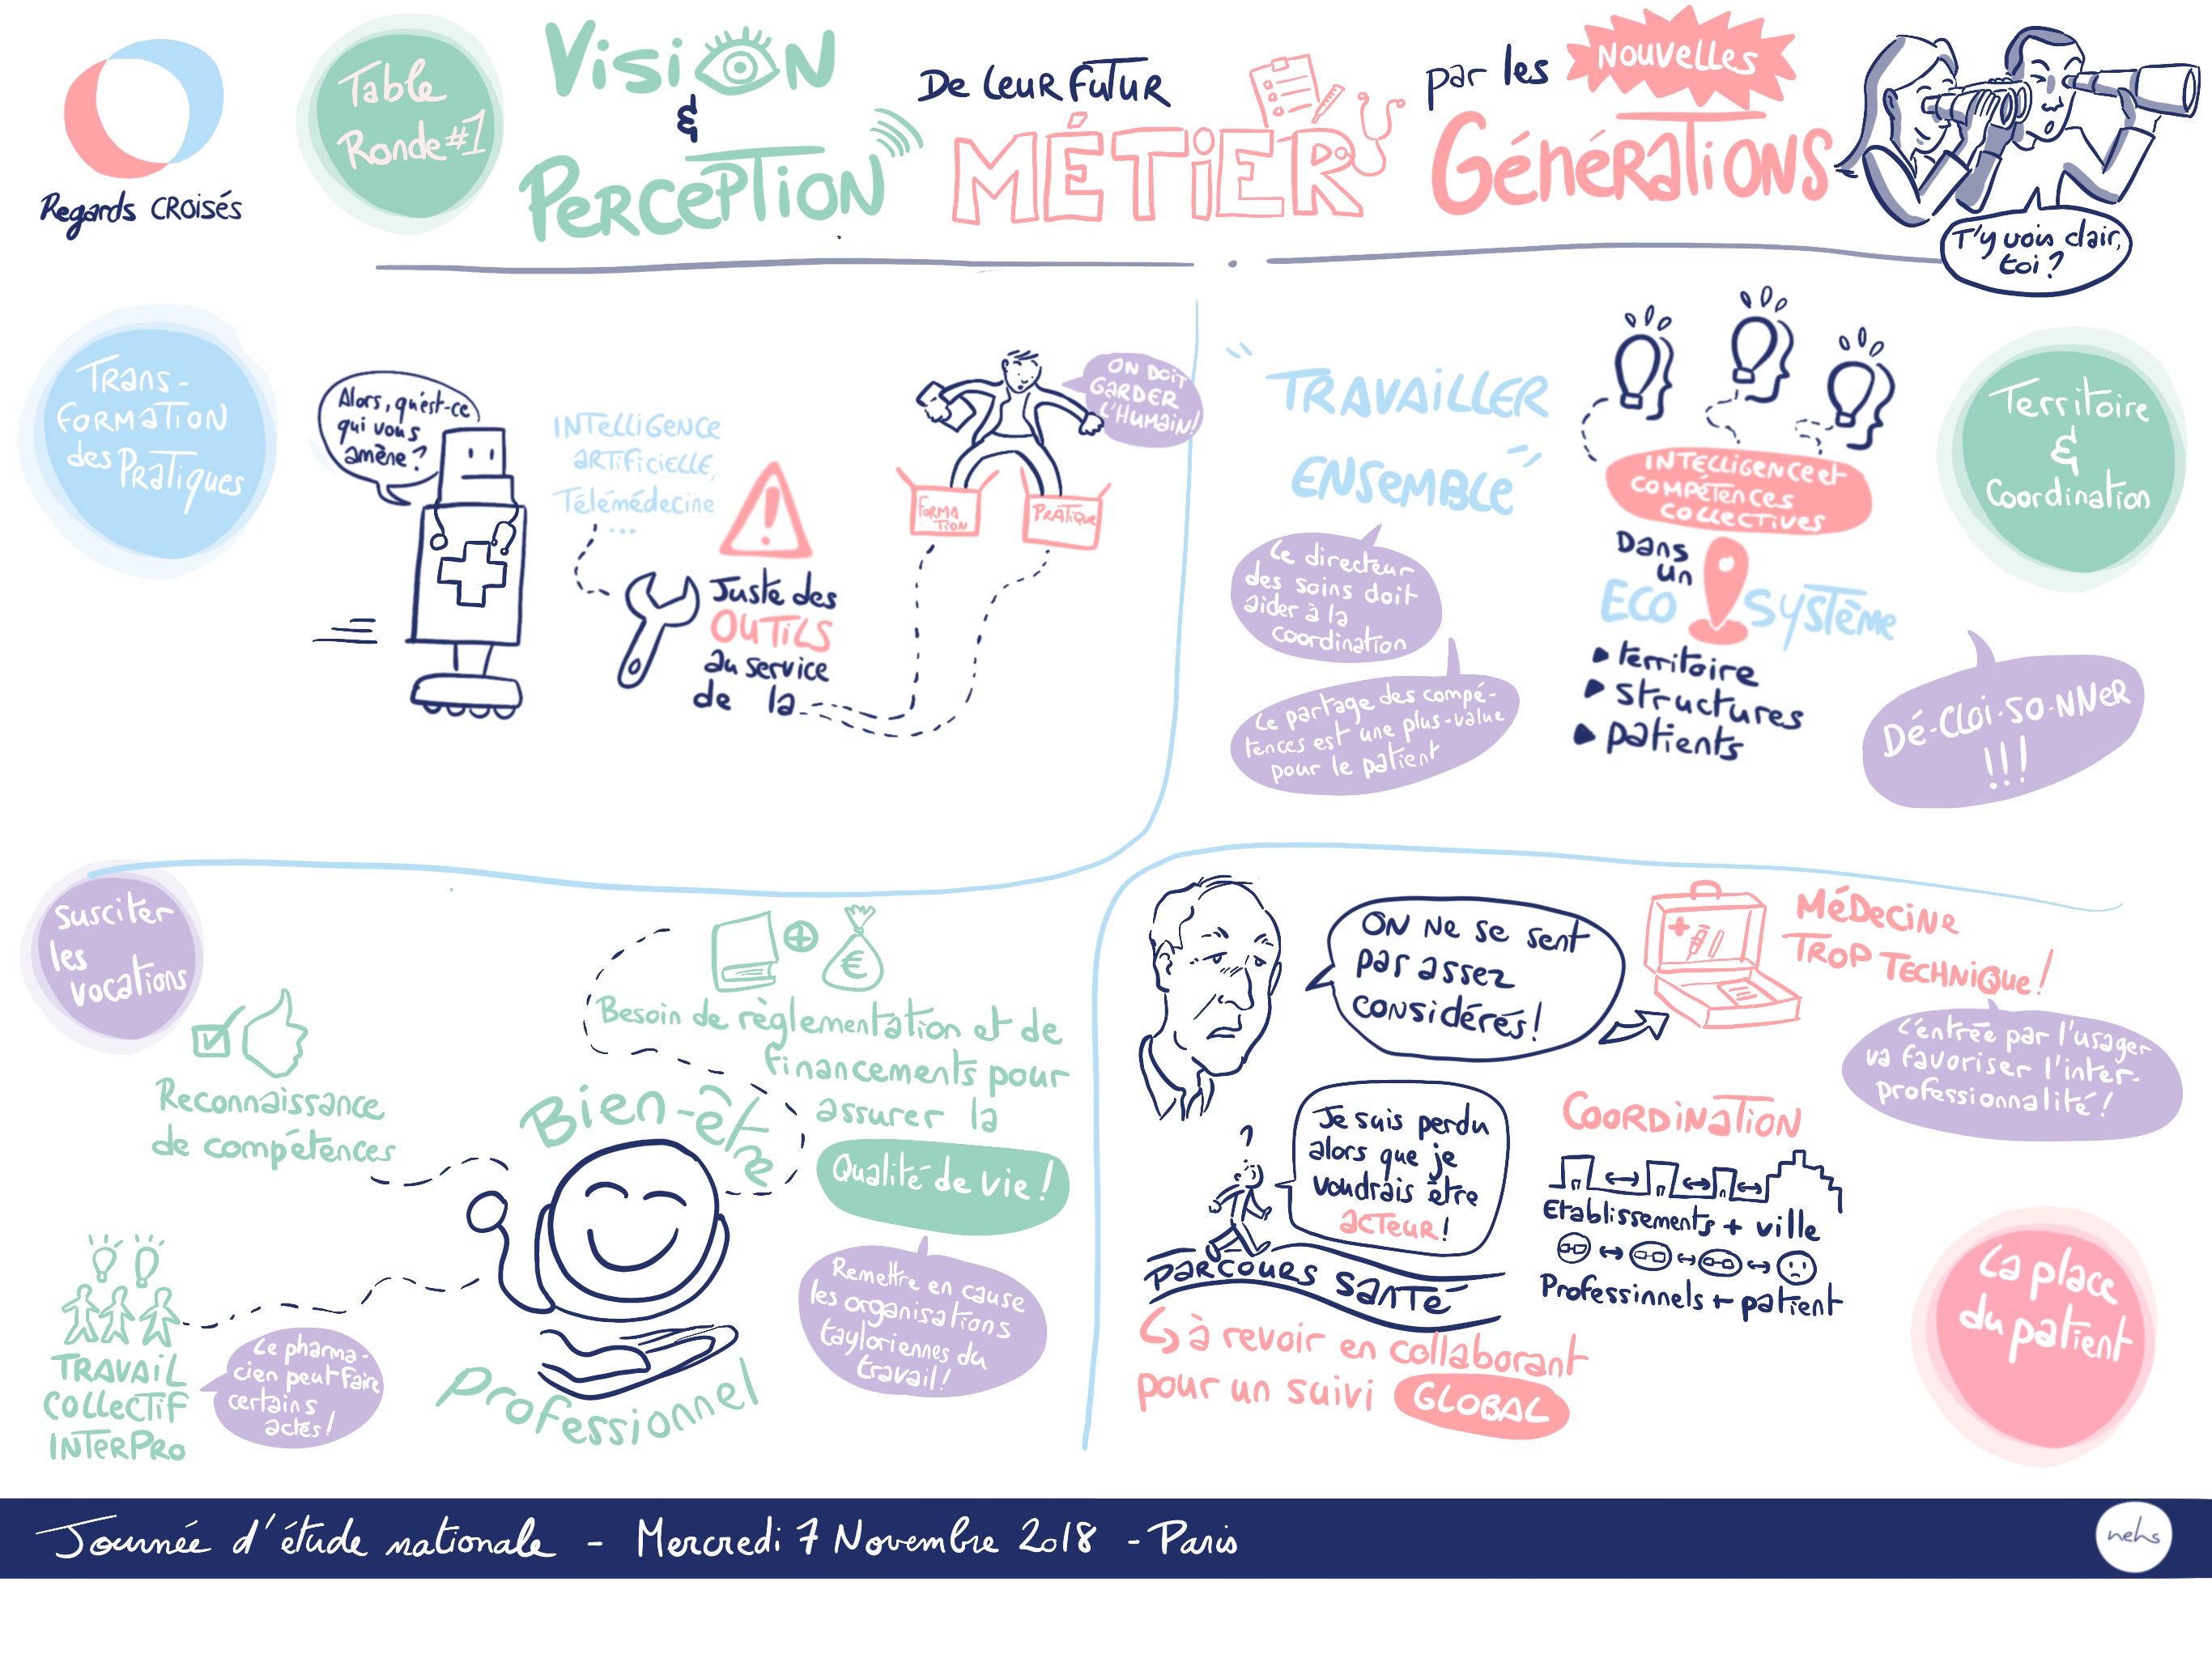 Regards CROisés
Table
Ronde #1
VisiON
&
PERCEPTION
De leur futur
MÉTiER
par les
NOUVElles
GénéRATiONS
T'y vois clair,
toi ?
Trans-
FORMATiON
des PRATiques
Alors, qu'est-ce
qui vous
amène ?
INTElliGENCE
ARTificiElle,
Télémédecine
...
!
Juste des
OUTiLS
au service
de la
FORMA
TION
PRATique
ON DOiT
GARDER
L'Humain!
TRAVAiLLER
ENSEMBLE
Le directeur
des soins doit
aider à la
coordination
Le partage des compé-
tences est une plus-value
pour le patient
INTElligence et
compétences
collectives
Dans
un
ECO SYSTème
territoire
structures
patients
Territoire
&
Coordination
Dé-Cloi-so-NNeR
!!!
susciter
les
vocations
Reconnaissance
de compétences
€
Besoin de règlementation et de
financements pour
assurer la
Qualité de vie !
Bien-être
Professionnel
Remettre en cause
les organisations
tayloriennes du
travail !
TRAVAiL
COLLECTiF
INTERPRO
Le pharma-
cien peut faire
certains
actes !
ON Ne se sent
par assez
considérés !
MéDecine
TROP TECHNiQue !
L'entrée par l'usager
va favoriser l'inter-
professionnalité !
?
Je suis perdu
alors que je
voudrais être
ACTEUR !
PARCOURS SANTé
à revoir en collaborant
pour un suivi GLOBAL
COORDiNATiON
Etablissements + ville
Professinnels + patient
La place
du patient
Journée d'étude nationale - Mercredi 7 Novembre 2018 - Paris
nehs